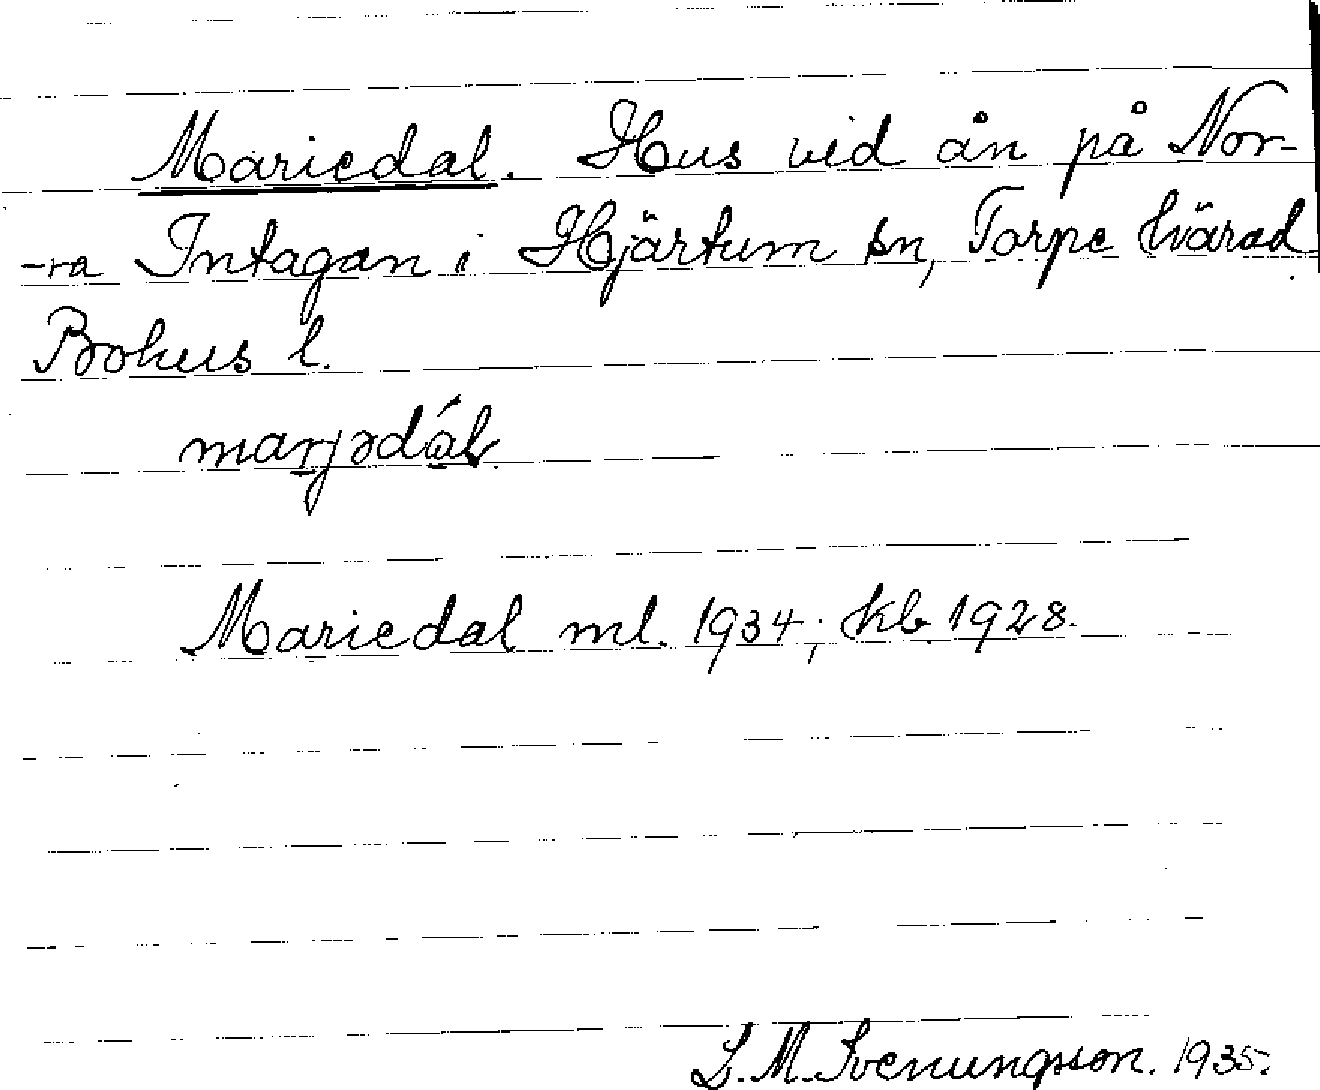 Mariedal. Hus vid ån på Nor-
-ra Intagan i Hjärtum sn, Torpe härad
Bohus l.
marjədál.
Mariedal ml. 1934; kb. 1928.
S. M. Svenungsson. 1935.